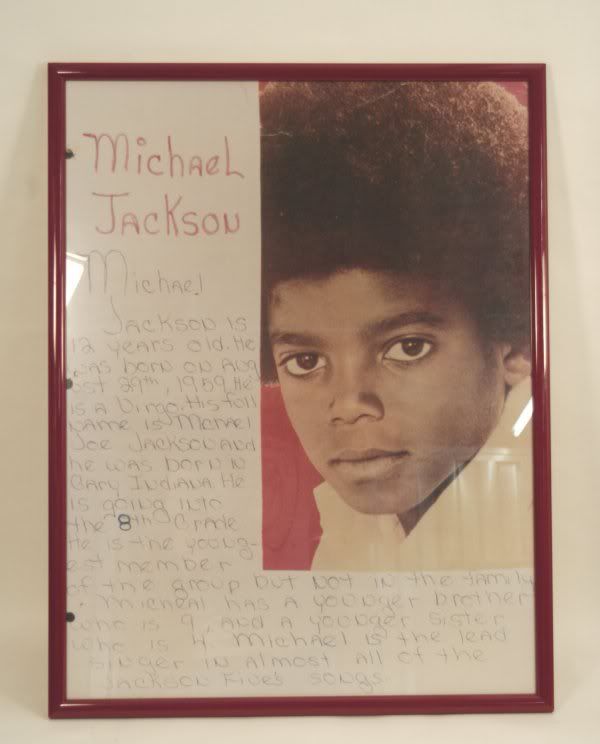 Michael
Jackson
Michael
Jackson is
12 years old. He
was born on Aug
ust 29th, 1959. He
is a Virgo. His full
name is Michael
Joe Jackson and
he was born in
Gary Indiana. He
is going into
the 8th Grade
He is the young-
est member
of the group but not in the family
. Micheal has a younger brother
who is 9, and a younger sister
who is 4. Michael is the lead
singer in almost all of the
Jackson Five's songs.